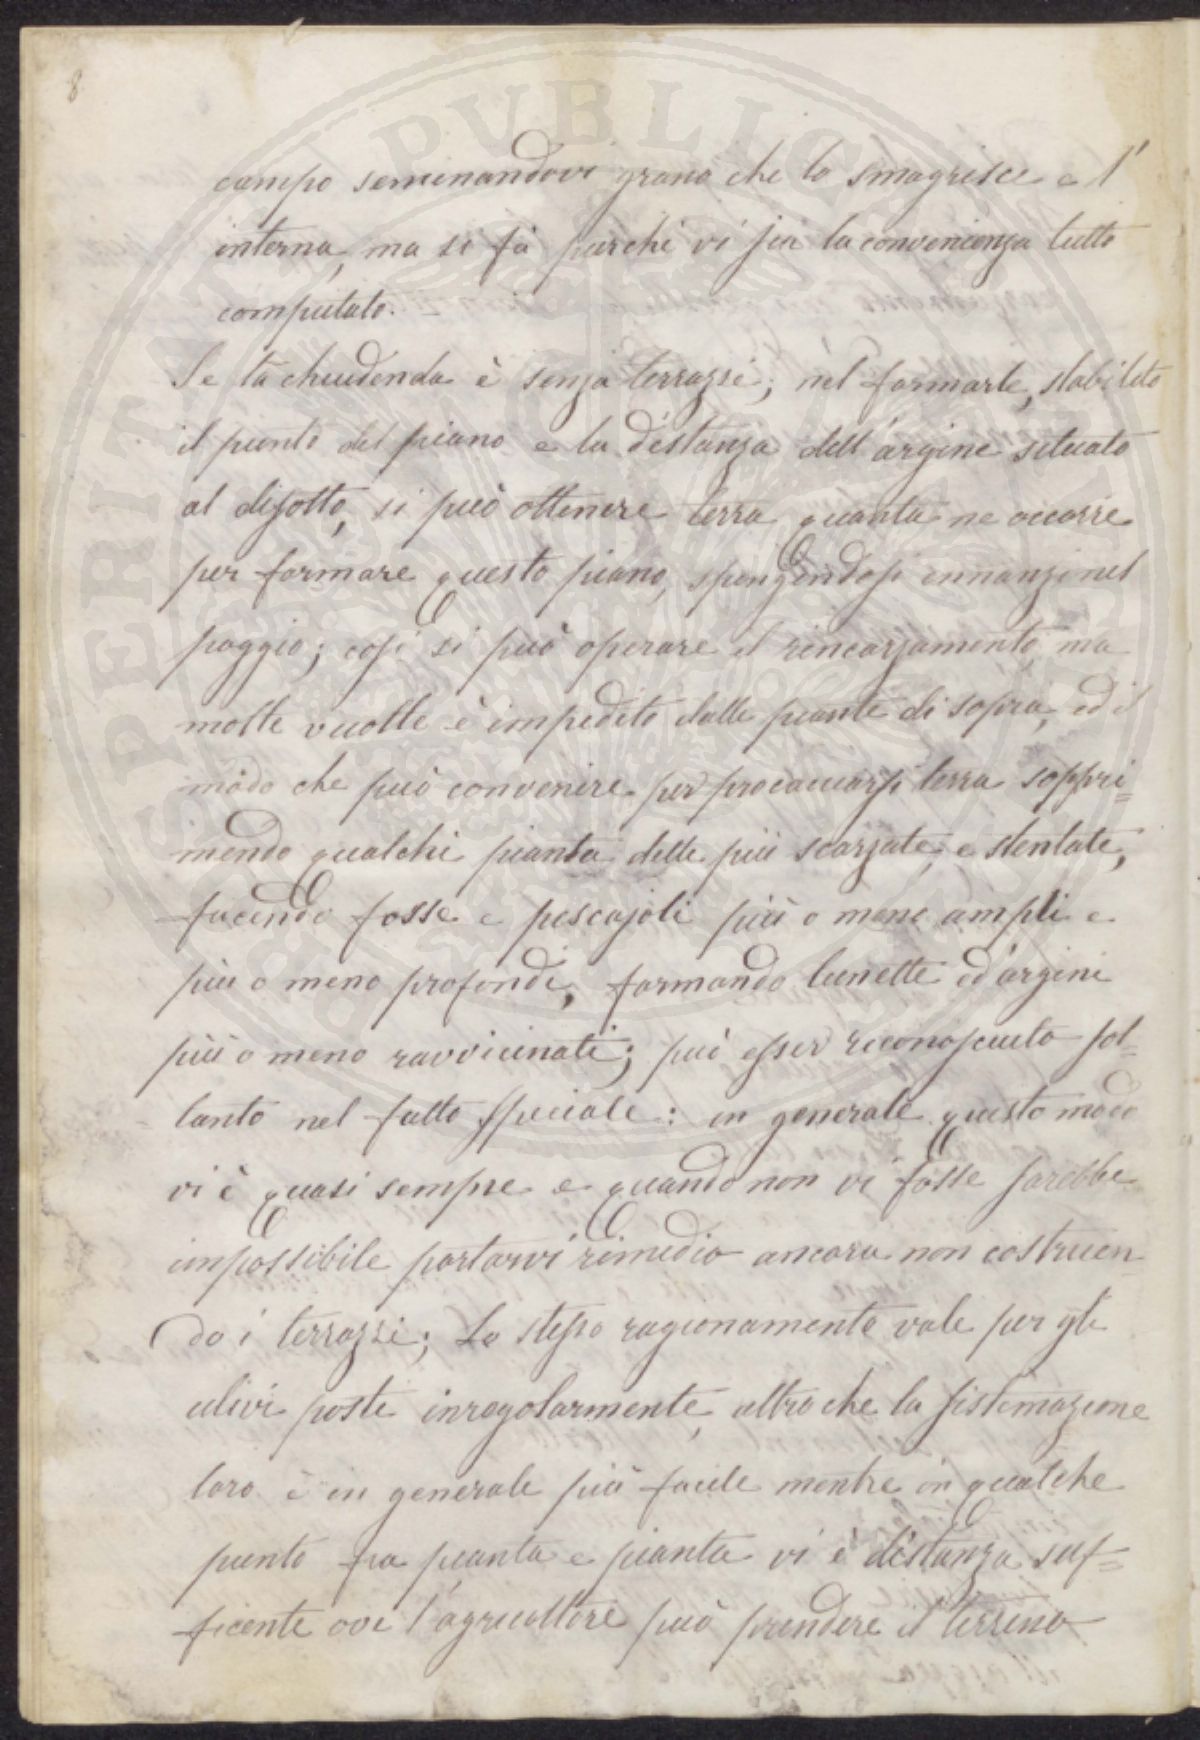 8
campo seminandovi grano che lo smagrisce e l'
interna, ma si fà purchè vi sia la convenienza tutto
computato.
Se la chiudenda è senza terrazzi; nel formarle, stabilito
il punto del piano e la distanza dell'argine situato
al disotto, si può ottenere terra quanta ne occorre
per formare questo piano, spengendosi innanzi nel
poggio; così si può operare il rincarzamento, ma
molte vuolte è impedito dalle piante di sopra, ed il
modo che può convenire per procacciarsi terra soppri=
mendo qualchi pianta delle più scarzate, e stentate,
facendo fosse e pescajoli più o meno ampli e
più o meno profondi, formando lunette ed argini
più o meno ravvicinati; può esser riconosciuto sol=
tanto nel fatto speciale: in generale questo modo
vi è quasi sempre e quando non vi fosse sarebbe
impossibile portarvi rimedio ancora non costruen
do i terrazzi; Lo stesso ragionamento vale per gli
ulivi posti inregolarmente, altro che la sistemazione
loro è in generale più facile mentre in qualche
punto fra pianta e pianta vi è distanza suf=
ficente ove l'agricoltore può prendere il terreno
SPERITAT PUBLICA